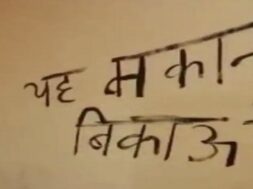 यह मकान
बिकाऊ